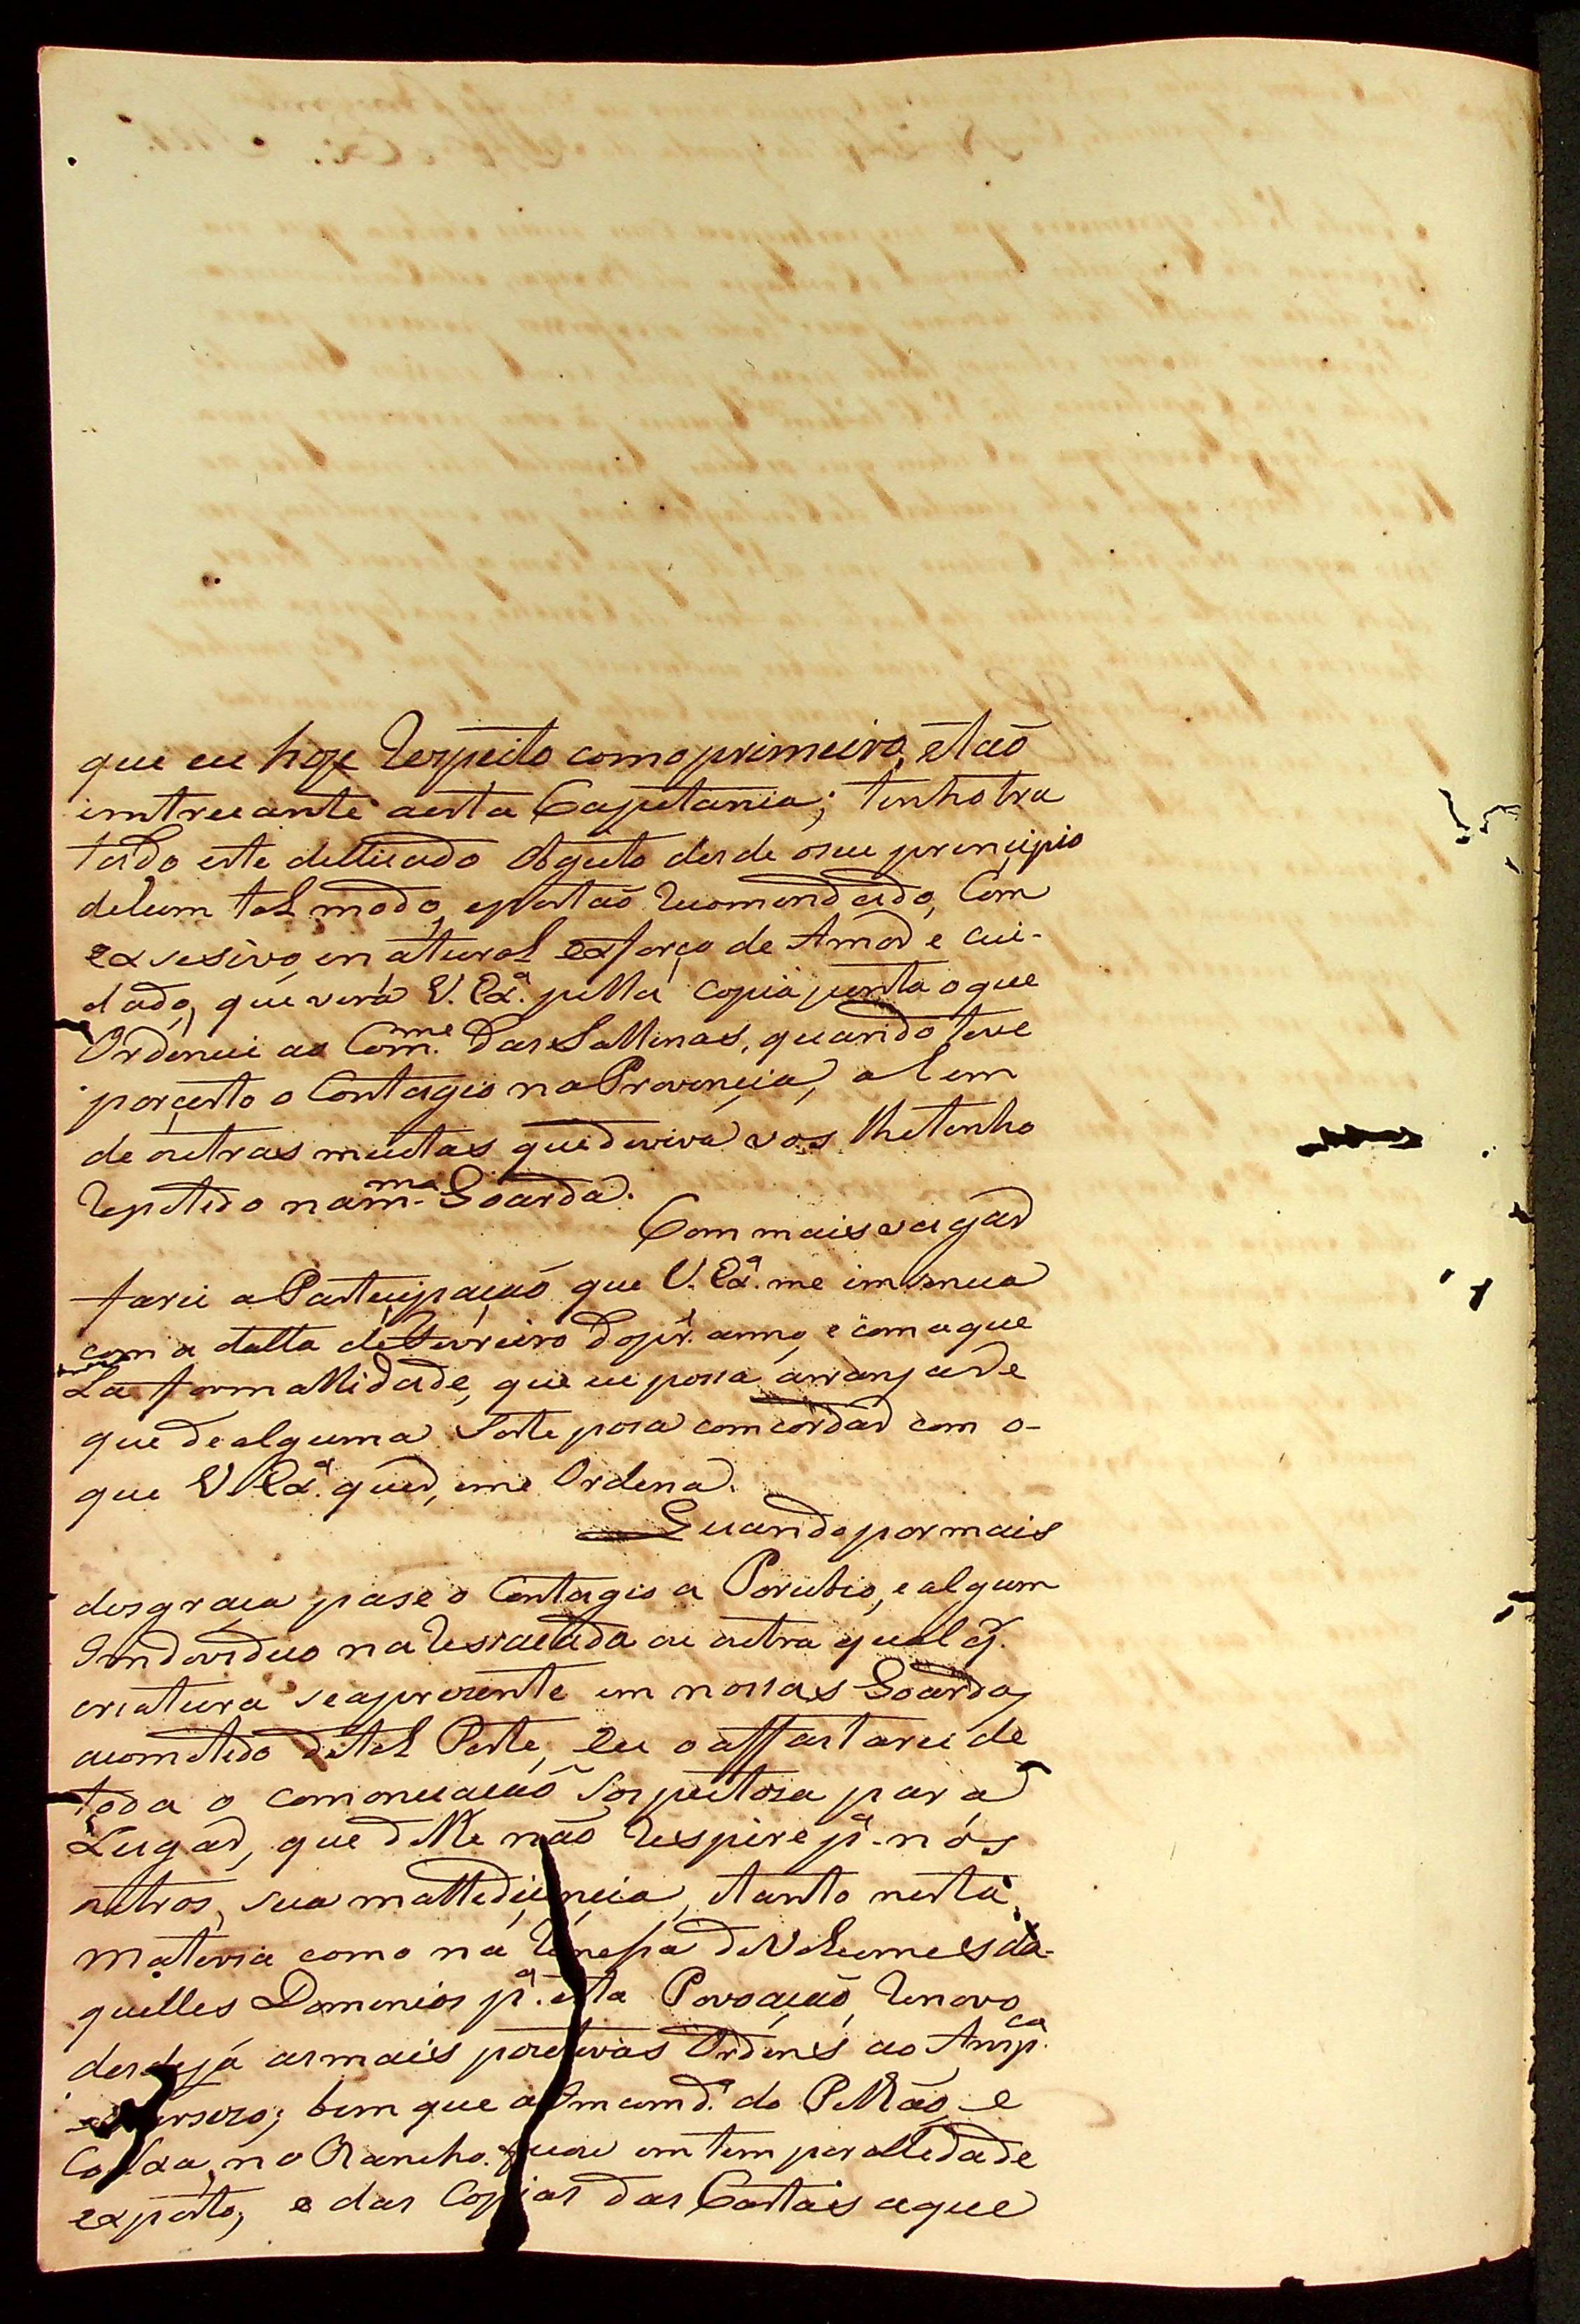 que eu hoje Respeito como primeiro, etão
intrecante aesta Capetania; tenho tra
tado este dellicado Obgeto desde oseu principio
dehum tal modo, eportão Recomendado, Com
exsesivo, enatural exforço de Amor e cui-
dado, que verá V. Exª. pella copia junta o que
Ordenei ao Comme. das Sallinas, quando teve
porçerto o Contagio na Provincia, alem
de outras muitas que de viva vos lhe tenho
Repetido na mma. Goarda.
Com mais vagar
farei a Partecipação que V. Exª. me insinua
com a datta de Fevreiro do pr. anno, e com aque
La formallidade, que eu possa arranjar e
que de alguma Sorte posa comcordar com o-
que V. Exª. quer, eme Ordena.
Quando por mais
desgraça pase o Contagio a Porubio, e algum
Indeviduo na Resacada ou outra qual q̃.
criatura seapresente em nossas Goardas
acometido de tal Peste, Eu o affastarei de
toda o comonicação Sospeitosa para
Lugar, que delle não Respire pª. nós
outros, sua malledicencia, etanto nesta
materia como na Remessa de Vollumes da-
quelles Domenios pª. esta Povoação, Renovo
desdejá as mais pozetivas Ordens ao Ansp.ca
bem que a Emcomdª. do Pellão, e
Caixa, no Rancho em temporallidade
exposto, e das Copias das Cartas aque